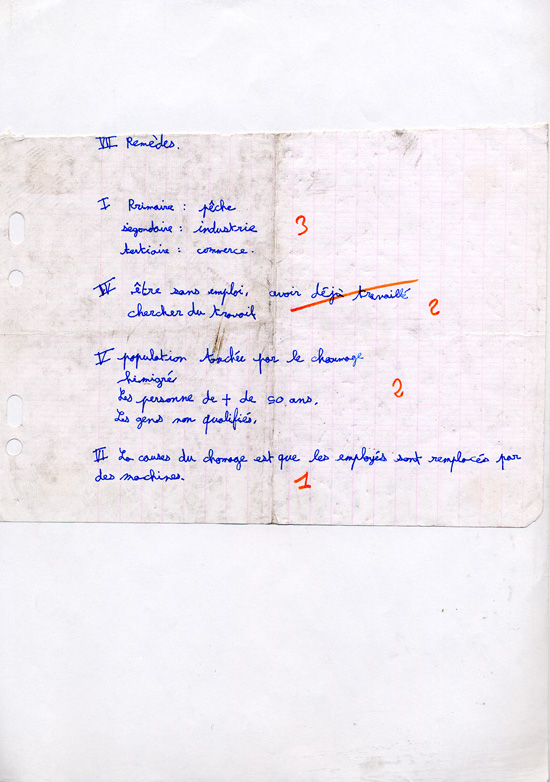 VII Remèdes.
I Primaire : pêche
segondaire : industrie
tertiaire : commerce.
3
IV être sans emploi, avoir déjà travaillé
chercher du travail
2
V population touchée par le choumage
himigré
Les personne de + de 50 ans.
Les gens non qualifiés.
2
VI La causes du chomage est que les employés sont remplacés par
des machines.
1